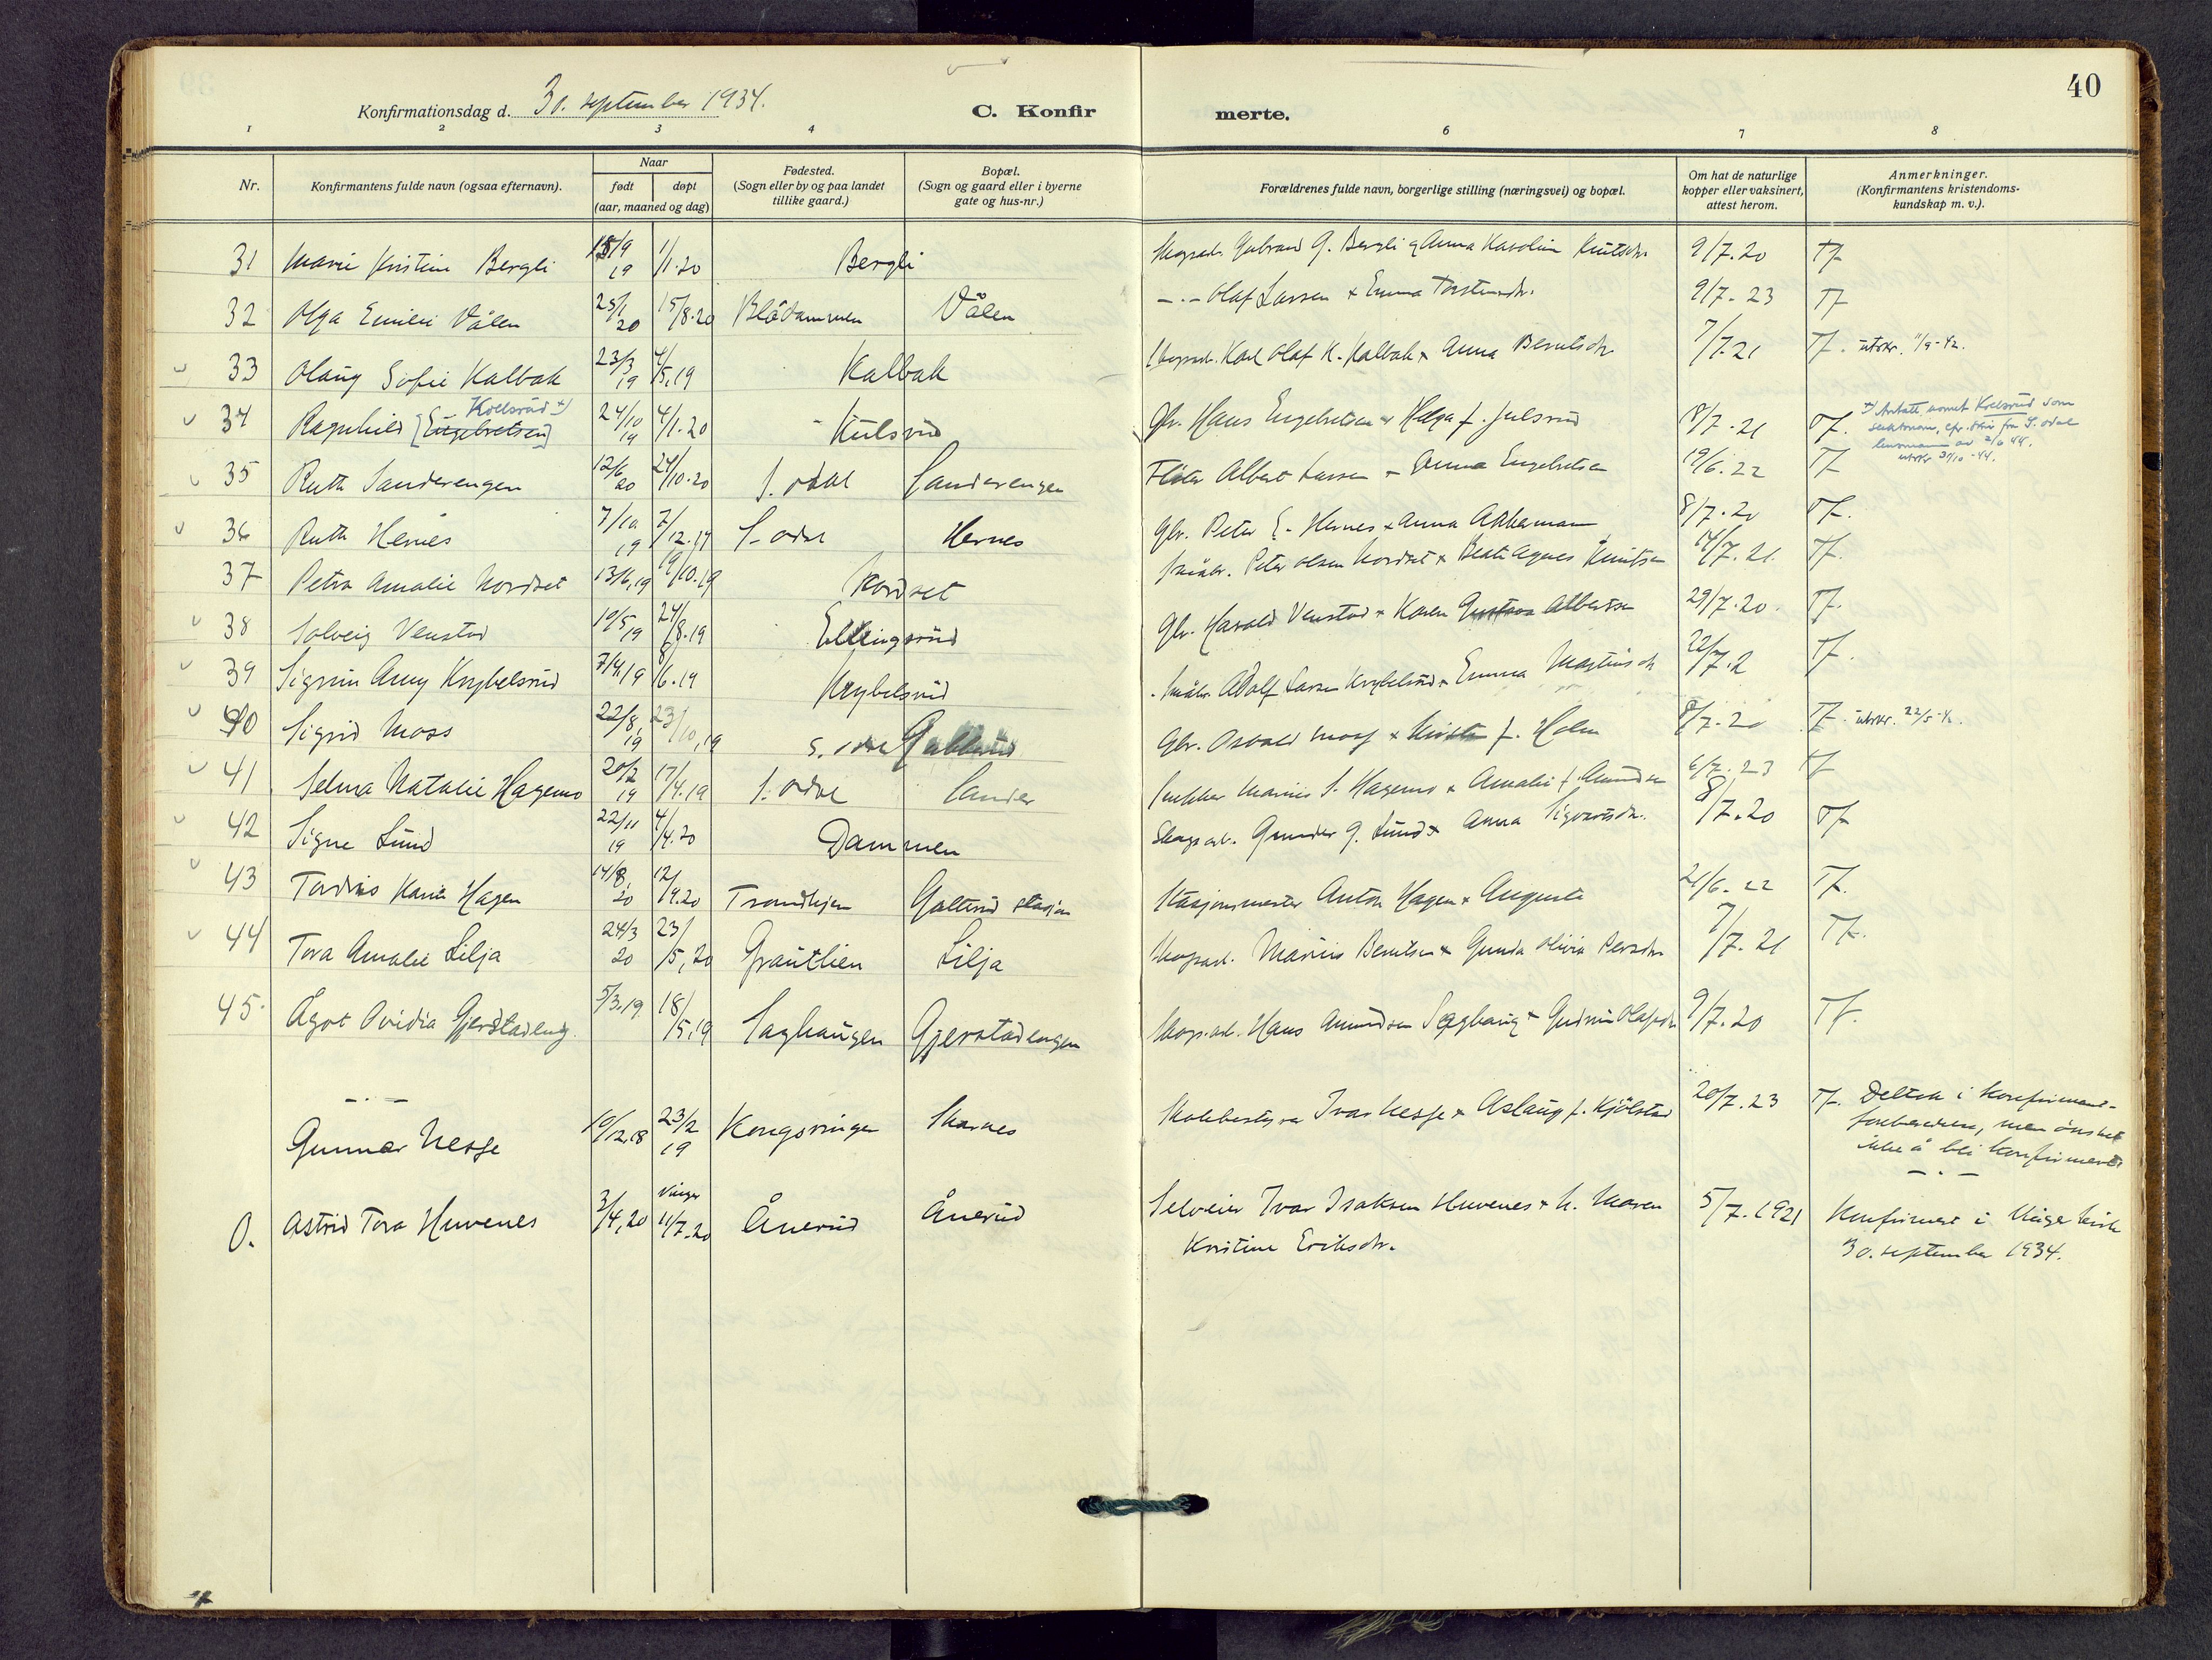 40
Konfirmationsdag d. 30. september 1934. C. Konfirmerte.
1 2 3 4 6 7 8
Nr. Konfirmantens fulde navn (ogsaa efternavn). Naar født døpt (aar, maaned og dag) Fødested. (Sogn eller by og paa landet tillike gaard.) Bopæl. (Sogn og gaard eller i byerne gate og hus-nr.) Forældrenes fulde navn, borgerlige stilling (næringsvei) og bopæl. Om hat de naturlige kopper eller vaksinert, attest herom. Anmerkninger. (Konfirmantens kristendoms-kundskap m. v.).
31 Marie Kristine Bergli 18/9 19 1/1.20 Bergli Skogsarb. Gulbrand G. Bergli & Anna Karoline Knutsdtr. 9/7.20 Tf
32 Olga Emilie Vålen 25/1 20 15/8.20 Blådammen Vålen -.- Olaf Larsen & Emma Torstensdtr. 9/7.23 Tf
33 Olaug Sofie Kalbak 23/3 19 4/5.19 Kalbak Skogsarb. Karl Olaf K. Kalbak & Anna Berntsdtr. 7/7.21 Tf. utskr. 11/9-42.
34 Ragnhild [Engebretsen] Koelsrud +) 24/10 19 4/1.20 Kulsrud Gbr. Hans Engebretsen & Helga f. Julsrud 8/7.21 Tf. +) Antatt navnet Koelsrud som slektsnavn, cfr. skriv fra S. odal lensmann av 2/6 44. utskr 31/10-44.
35 Ruth Sanderengen 12/6 20 24/10.20 S. odal Sanderengen Fløter Albert Larsen & Emma Engebretsen 19/6.22 Tf
36 Ruth Hernes 7/10 19 7/12.19 S. odal Hernes Gbr. Peter E. Hernes & Anna Akkerman 8/7.20 Tf.
37 Petra Amalie Nordset 13/6,19 19/10.19 Nordset Småbr. Peter Olsen Nordset & Beate Agnes Knutsen 14/7.21. Tf.
38 Solveig Venstad 19/5 19 24/8.19 Ellingsrud Gbr. Harald Venstad & Karen Gustava Albertsen 29/7.20. Tf.
39 Sigrun Anny Krybelsrud 7/4.19 8/6.19 Krybelsrud Småbr. Adolf Larsen Krybelsrud & Emma Martinsdtr 22/7.2 Tf.
40 Sigrid Moss 22/8, 19 23/10,19 S. odal Galterud Gbr. Osvald Moss & f. Holm 8/7.20 Tf. utskr. 22/5-42.
41 Selma Natalie Hagemo 20/2 19 17/4.19 S. odal Sander Snekker Marius S. Hagemo & Amalie f. Amundsen 6/7.23 Tf
42 Signe Lund 22/11 19 4/4.20 Dammen Skogsarb. Gunder G. Lund & Anna Sigvartsdtr. 8/7.20 Tf
43 Tordis Karin Hagen 14/8, 20 12/19.20 Trondhjem Galterud stasjon Stasjonsmester Anton Hagen & Augusta 21/6.22 Tf.
44 Tora Amalie Lilja 24/3 20 23/5,20 Grautlien Lilja Skogsarb. Marius Berntsen & Gunda Olivia Persdtr 7/7.21 Tf.
45 Ågot Ovidia Gjerstadeng. 5/3.19 18/5,19 Saghaugen Gjerstadengen Skogsarb. Hans Amundsen Saghaug & Gudrun Olafsdtr. 9/7.20 Tf.
-.-
Gunnar Nesse 10/12,18 23/2 19 Kongsvinger Skarnes Skolebestyrer Ivar Nesse & Aslaug f. Kjölstad 20/7.23 Tf. Deltok i konfirmant-
forberedelsen, men ønsket
ikke å bli konfirmert
-.-
O. Astrid Tora Huvenes 3/4,20 Vinger 11/7.20 Ånerud Ånerud Selveier Ivar Isaksen Huvenes & h. Maren 5/7.1921 Konfirmert i Vinger kirke
Kristine Eriksdtr. 30. september 1934.